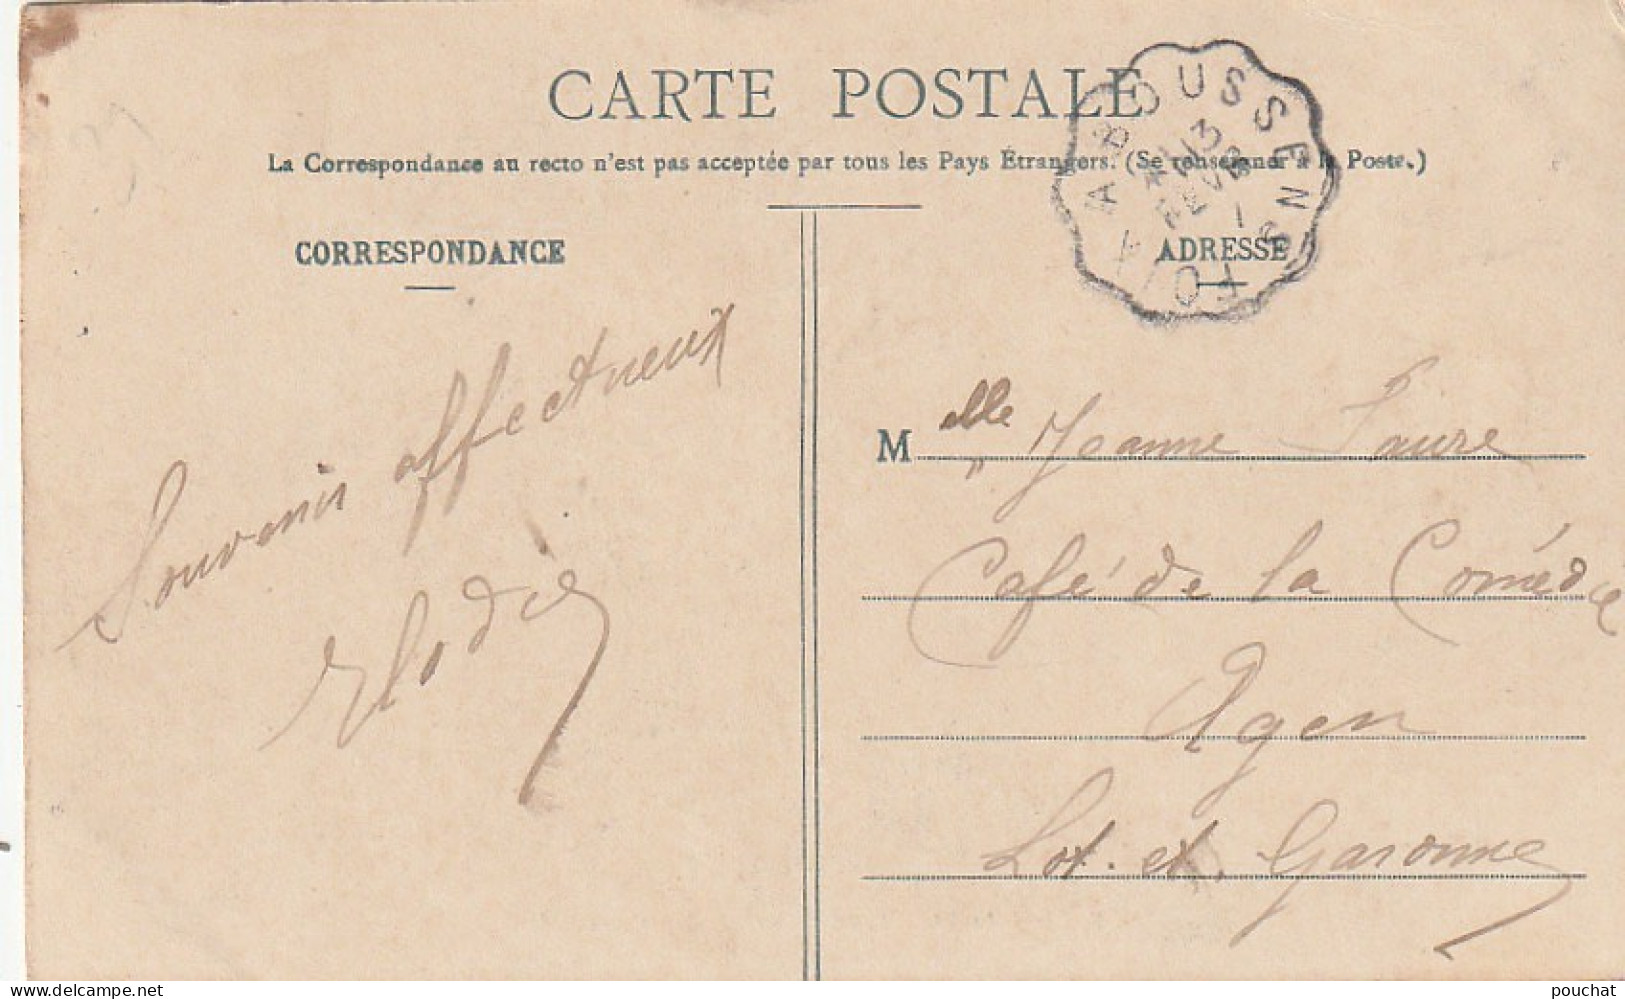 CARTE POSTALE
La Correspondance au recto n'est pas acceptée par tous les Pays Étrangers. (Se renseigner à la Poste.)
CORRESPONDANCE
ADRESSE
LABOUSSENS
13
FEVR
FOIX
Souvenir affectueux
Elodie
M elle Jeanne Faure
Café de la Comédie
Agen
Lot. et. Garonne
delcampe.net
pouchat